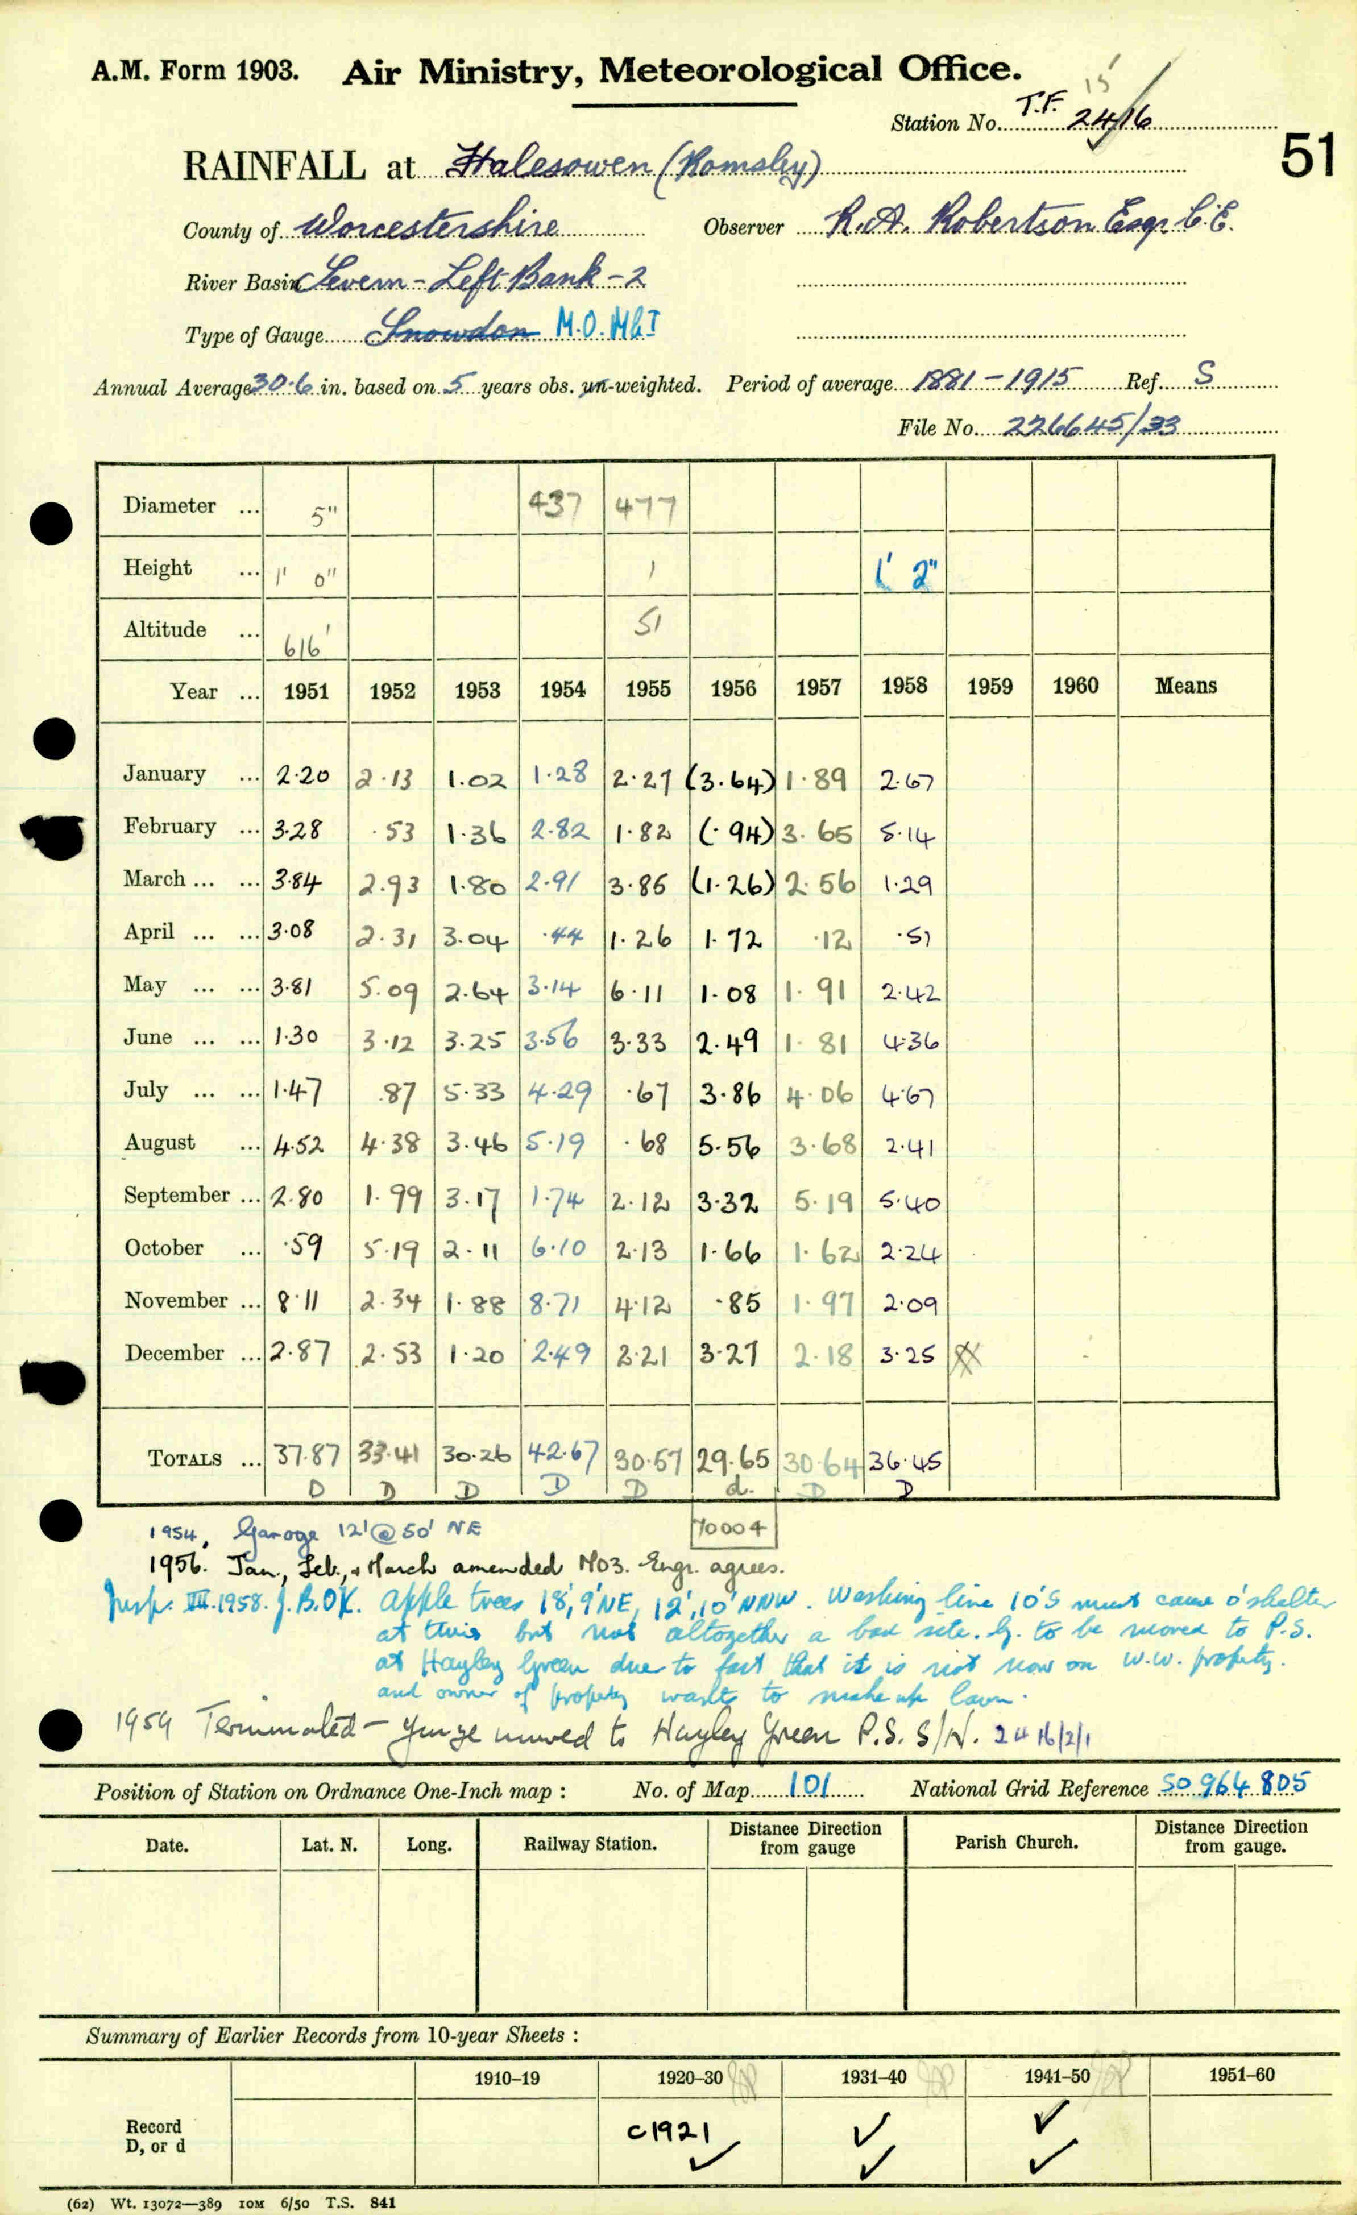 A.M. Form 1903. Air Ministry, Meteorological Office.
15
Station No. T.F. 2416
51
RAINFALL at Halesowen (Romsley)
County of Worcestershire Observer R.A. Robertson Esqr C.E.
River Basin Severn - Left Bank - 2
Type of Gauge Snowdon M.O. Mk I
Annual Average 30·6 in. based on 5 years obs. un-weighted. Period of average 1881-1915 Ref. S
File No. 226645/33
Diameter ... 5" 437 477
Height ... 1' 0" 1 1' 2"
Altitude ... 616' 51
Year ... 1951 1952 1953 1954 1955 1956 1957 1958 1959 1960 Means
January ... 2·20 2·13 1·02 1·28 2·27 (3·64) 1·89 2·67
February ... 3·28 ·53 1·36 2·82 1·82 (·94) 3·65 5·14
March ... ... 3·84 2·93 1·80 2·91 3·85 (1·26) 2·56 1·29
April ... ... 3·08 2·31 3·04 ·44 1·26 1·72 ·12 ·51
May ... ... 3·81 5·09 2·64 3·14 6·11 1·08 1·91 2·42
June ... ... 1·30 3·12 3·25 3·56 3·33 2·49 1·81 4·36
July ... ... 1·47 ·87 5·33 4·29 ·67 3·86 4·06 4·67
August ... 4·52 4·38 3·46 5·19 ·68 5·56 3·68 2·41
September ... 2·80 1·99 3·17 1·74 2·12 3·32 5·19 5·40
October ... ·59 5·19 2·11 6·10 2·13 1·66 1·62 2·24
November ... 8·11 2·34 1·88 8·71 4·12 ·85 1·97 2·09
December ... 2·87 2·53 1·20 2·49 2·21 3·27 2·18 3·25
TOTALS ... 37·87 33·41 30·26 42·67 30·57 29·65 30·64 36·45
D D D D D d. D D
1954, Garage 12' @ 50' NE 70004
1956. Jan., Feb., + March amended MO3. Engr. agrees.
Insp. VII.1958. J.B. OK. Apple trees 18', 9' NE, 12', 10' NNW. Washing line 10' S must cause o'shelter
at times but not altogether a bad site. G. to be moved to P.S.
at Hayley Green due to fact that it is not now on W.W. property.
and owner of property wants to make up lawn.
1959 Terminated - gauge moved to Hayley Green P.S. S/N. 2416/2/1
Position of Station on Ordnance One-Inch map : No. of Map 101 National Grid Reference SO 964 805
Date. Lat. N. Long. Railway Station. Distance Direction from gauge Parish Church. Distance Direction from gauge.
Summary of Earlier Records from 10-year Sheets :
1910–19 1920–30 1931–40 1941–50 1951–60
Record c1921 ✓ ✓
D, or d ✓ ✓ ✓
(62) Wt. 13072—389 10M 6/50 T.S. 841